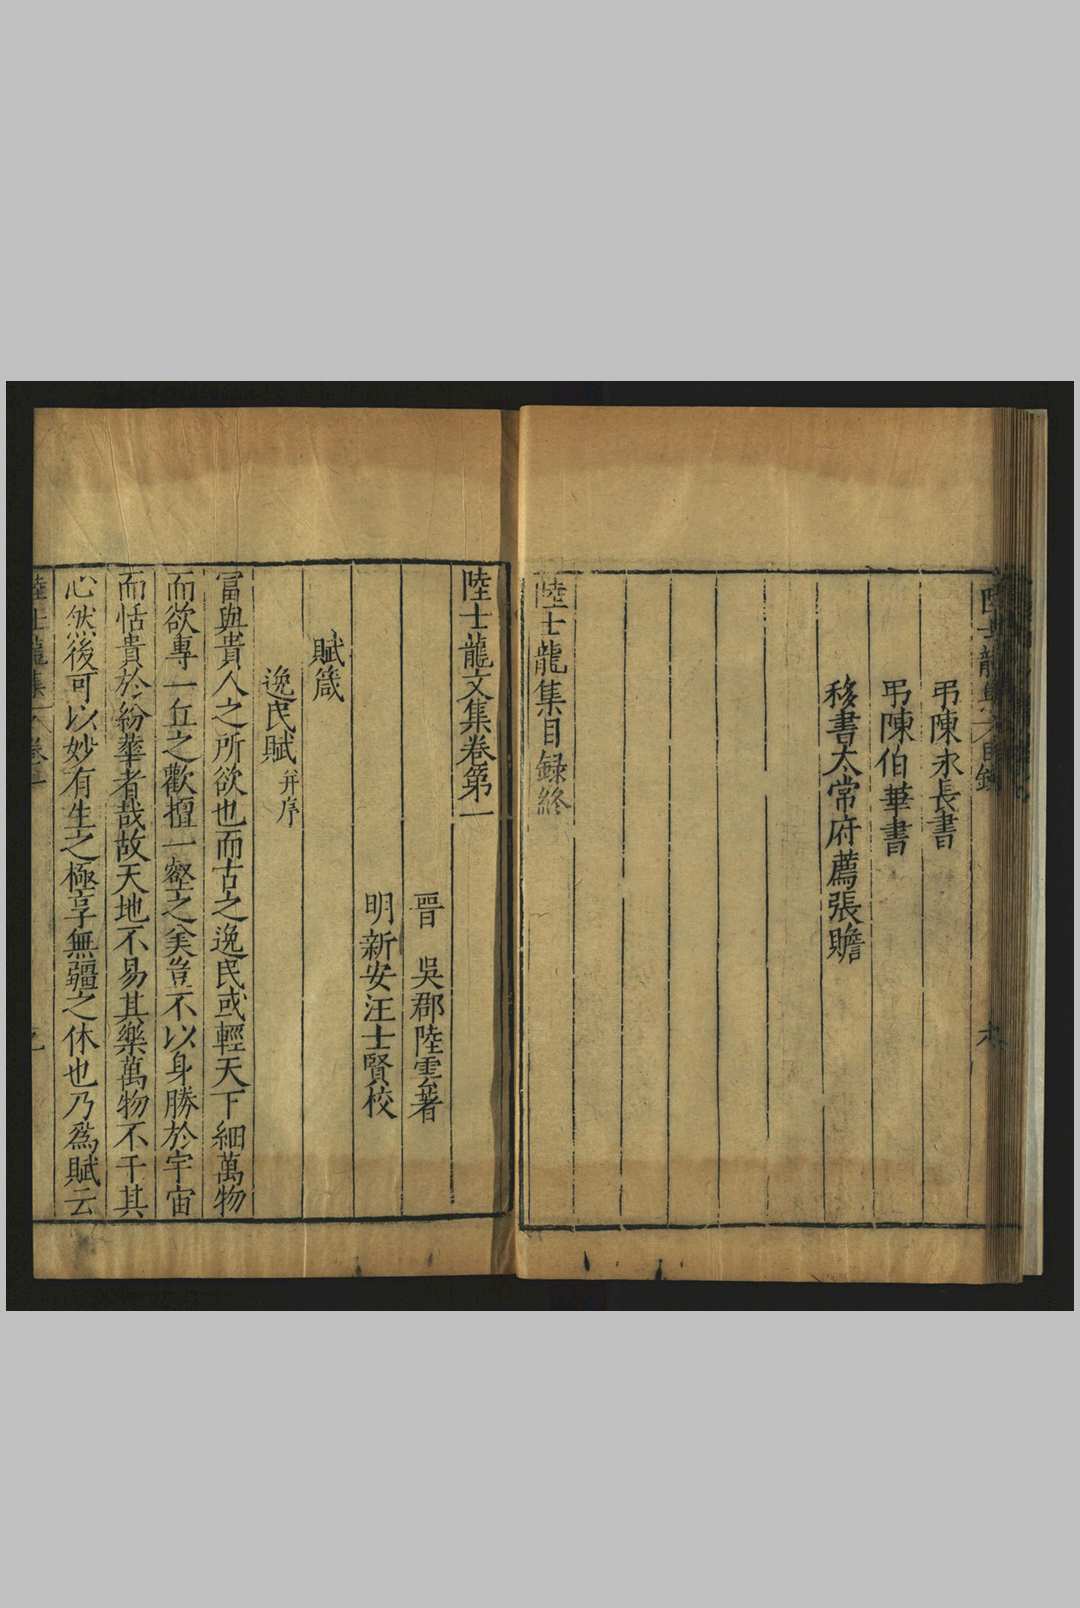 陸士龍集 目録
弔陳永長書
弔陳伯華書
移書太常府薦張贍
陸士龍集目録終
陸士龍文集卷第一
晉 吳郡陸雲著
明新安汪士賢校
賦箴
逸民賦并序
富與貴人之所欲也而古之逸民或輕天下細萬物
而欲專一丘之歡擅一壑之美豈不以身勝於宇宙
而恬貴於紛華者哉故天地不易其樂萬物不干其
心然後可以妙有生之極享無疆之休也乃爲賦云
陸士龍集 卷一